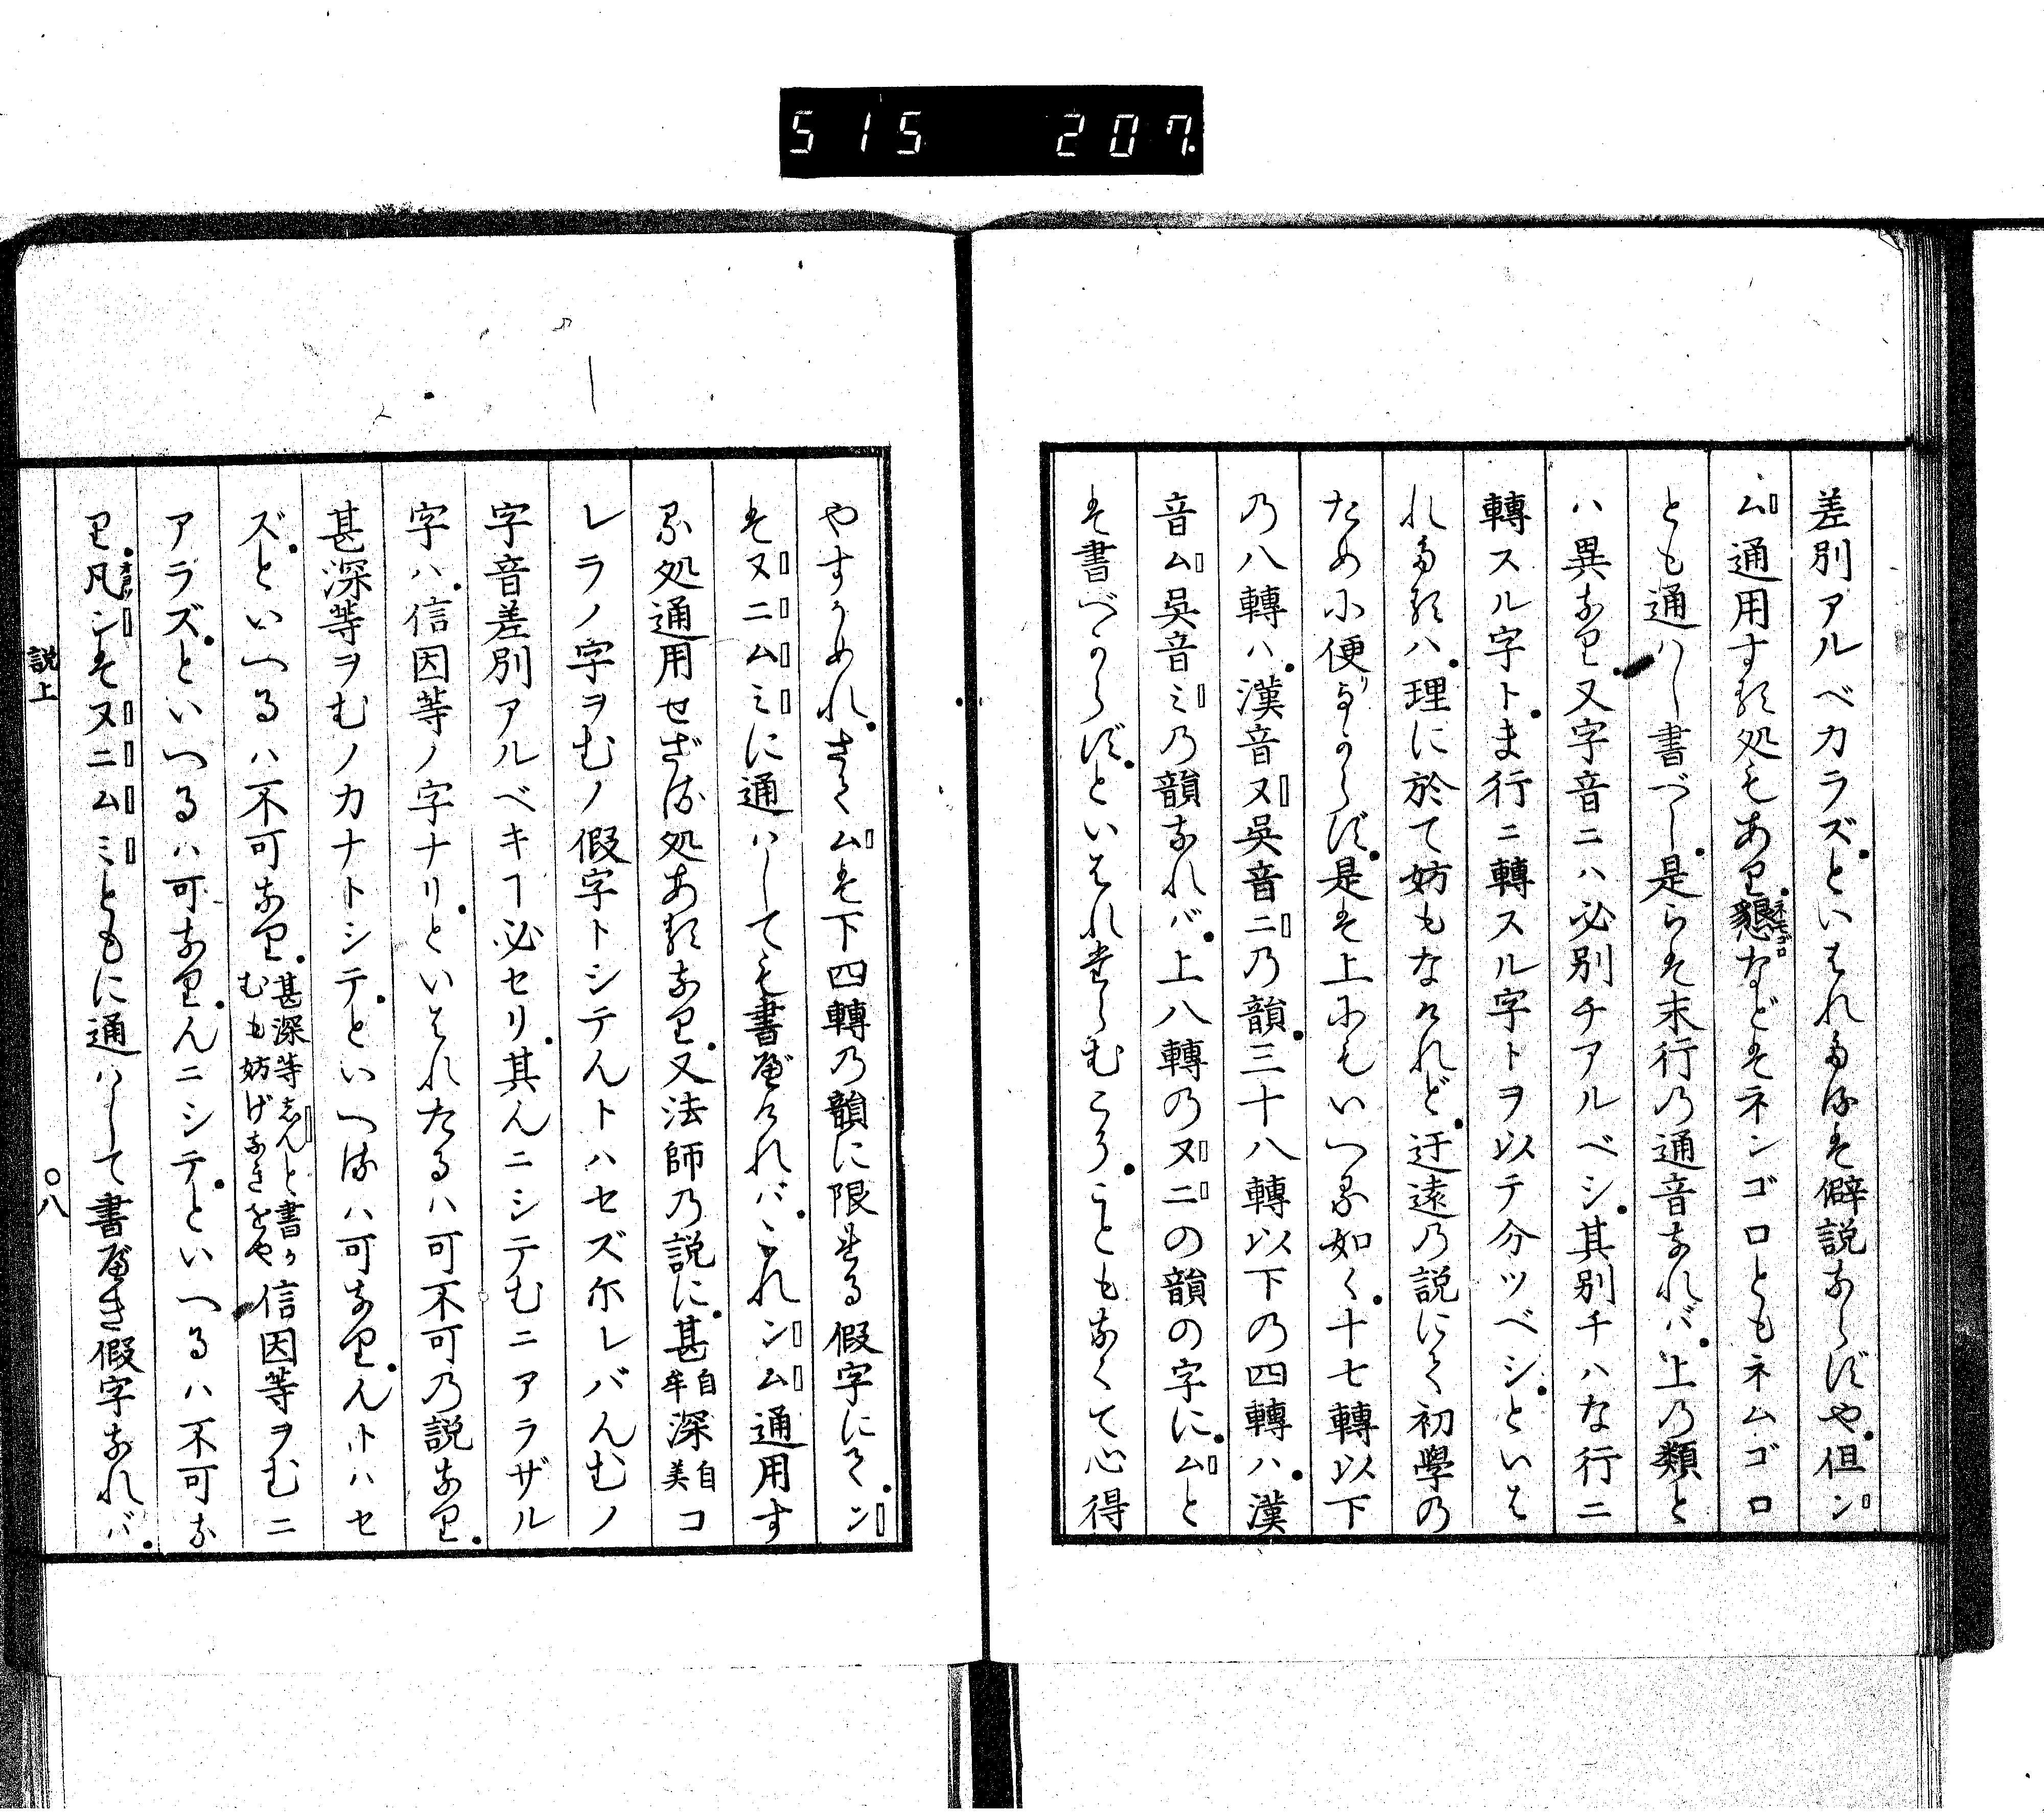 515 207
差別アルベカラズ。といはれたるは僻説ならずや。但ン
ム通用する処もあり。懇ネモゴロなどはネンゴロともネムゴロ
とも通ハし書べし。是らは末行の通音なれバ。上の類と
ハ異なり。又字音ニハ必別チアルベシ。其別チハな行ニ
轉スル字ト。ま行ニ轉スル字トヲ以テ分ツベシ。といは
れたるハ。理に於て妨もなけれど。迂遠の説にて初學の
ため小便りよからず。是は上にもいへる如く。十七轉以下
の八轉ハ。漢音ヌ吳音ニの韻。三十八轉以下の四轉ハ。漢
音ム吳音ミの韻なれバ。上八轉のヌニの韻の字に。ムと
は書べからず。といはれたらむこそ。こともなくて心得
やすからめれ。さてムは下四轉の韻に限れる假字にて。ン
はヌニムミに通ハしても書べけれバ。これンム通用す
る処通用せざる処あるなり。又法師の説に。甚自牟深自美コ
レラノ字ヲむノ假字トシテんトハセズ尓レバんむノ
字音差別アルベキヿ必セリ。其んニシテむニアラザル
字ハ。信因等ノ字ナリ。といはれたるハ可不可の説なり。
甚深等ヲむノカナトシテ。といへるハ可なり。んトハセ
ズ。といへるハ不可なり。甚深等しんと書かむも妨げなきをや信因等ヲむニ
アラズ。といへるハ可なり。んニシテ。といへるハ不可な
り。凡オヨソンはヌニムミともに通ハして書べき假字なれバ。
説上 〇八